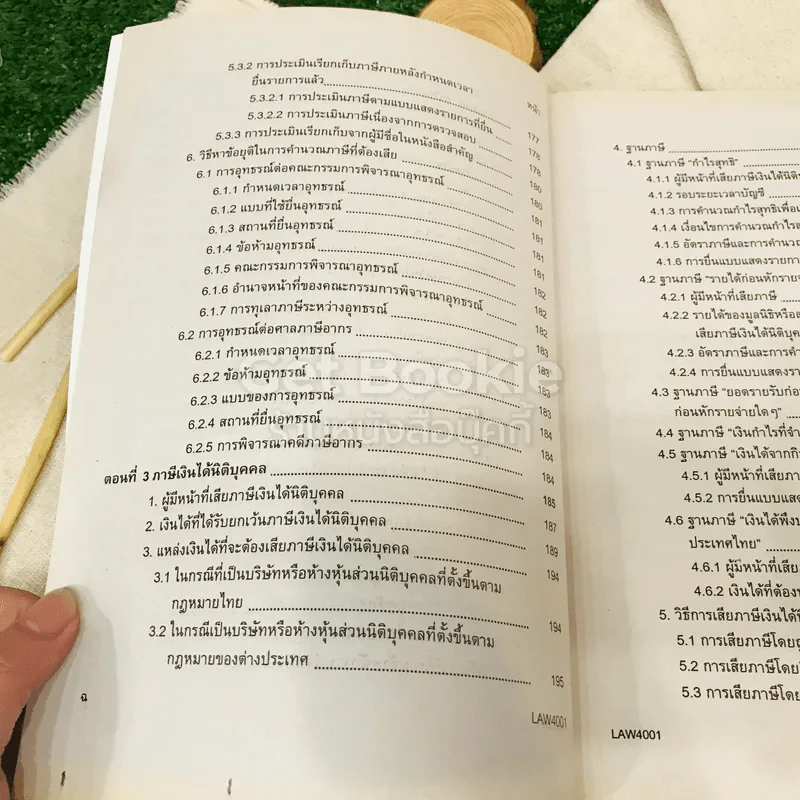 5.3.2 การประเมินเรียกเก็บภาษีภายหลังกำหนดเวลา
หน้า
ยื่นรายการแล้ว
5.3.2.1 การประเมินภาษีตามแบบแสดงรายการที่ยื่น 177
5.3.2.2 การประเมินภาษีเนื่องจากการตรวจสอบ 178
5.3.3 การประเมินเรียกเก็บจากผู้มีชื่อในหนังสือสำคัญ 179
6. วิธีหาข้อยุติในการคำนวณภาษีที่ต้องเสีย 180
6.1 การอุทธรณ์ต่อคณะกรรมการพิจารณาอุทธรณ์ 180
6.1.1 กำหนดเวลาอุทธรณ์ 181
6.1.2 แบบที่ใช้ยื่นอุทธรณ์ 181
6.1.3 สถานที่ยื่นอุทธรณ์ 181
6.1.4 ข้อห้ามอุทธรณ์ 181
6.1.5 คณะกรรมการพิจารณาอุทธรณ์ 182
6.1.6 อำนาจหน้าที่ของคณะกรรมการพิจารณาอุทธรณ์ 182
6.1.7 การทุเลาภาษีระหว่างอุทธรณ์ 182
6.2 การอุทธรณ์ต่อศาลภาษีอากร 183
6.2.1 กำหนดเวลาอุทธรณ์ 183
6.2.2 ข้อห้ามอุทธรณ์ 183
6.2.3 แบบของการอุทธรณ์ 183
6.2.4 สถานที่ยื่นอุทธรณ์ 184
6.2.5 การพิจารณาคดีภาษีอากร 184
ตอนที่ 3 ภาษีเงินได้นิติบุคคล 184
1. ผู้มีหน้าที่เสียภาษีเงินได้นิติบุคคล 185
2. เงินได้ที่ได้รับยกเว้นภาษีเงินได้นิติบุคคล 187
3. แหล่งเงินได้ที่จะต้องเสียภาษีเงินได้นิติบุคคล 189
3.1 ในกรณีที่เป็นบริษัทหรือห้างหุ้นส่วนนิติบุคคลที่ตั้งขึ้นตาม 194
กฎหมายไทย 194
3.2 ในกรณีเป็นบริษัทหรือห้างหุ้นส่วนนิติบุคคลที่ตั้งขึ้นตาม
กฎหมายของต่างประเทศ 195
ฉ
LAW4001
4. ฐานภาษี
4.1 ฐานภาษี "กำไรสุทธิ"
4.1.1 ผู้มีหน้าที่เสียภาษีเงินได้นิติ
4.1.2 รอบระยะเวลาบัญชี
4.1.3 การคำนวณกำไรสุทธิเพื่อ
4.1.4 เงื่อนไขการคำนวณกำไร
4.1.5 อัตราภาษีและการคำนวณ
4.1.6 การยื่นแบบแสดงรายการ
4.2 ฐานภาษี "รายได้ก่อนหักราย
4.2.1 ผู้มีหน้าที่เสียภาษี
4.2.2 รายได้ของมูลนิธิหรือ
เสียภาษีเงินได้นิติบุคค
4.2.3 อัตราภาษีและการคำ
4.2.4 การยื่นแบบแสดงราย
4.3 ฐานภาษี "ยอดรายรับก่อ
ก่อนหักรายจ่ายใด ๆ"
4.4 ฐานภาษี "เงินกำไรที่จำ
4.5 ฐานภาษี "เงินได้จากกิ
4.5.1 ผู้มีหน้าที่เสียภาษี
4.5.2 การยื่นแบบแสด
4.6 ฐานภาษี "เงินได้พึง
ประเทศไทย"
4.6.1 ผู้มีหน้าที่เสีย
4.6.2 เงินได้ที่ต้อง
5. วิธีการเสียภาษีเงินได้
5.1 การเสียภาษีโดย
5.2 การเสียภาษีโดย
5.3 การเสียภาษีโดย
LAW4001
Get Bookie
ร้านหนังสือบุ๊คกี้